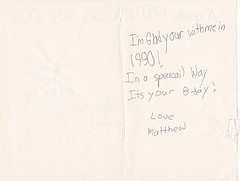 I'm Glad your with me in
1990!
In a specail Way
Its your B-day!
Love
Matthew